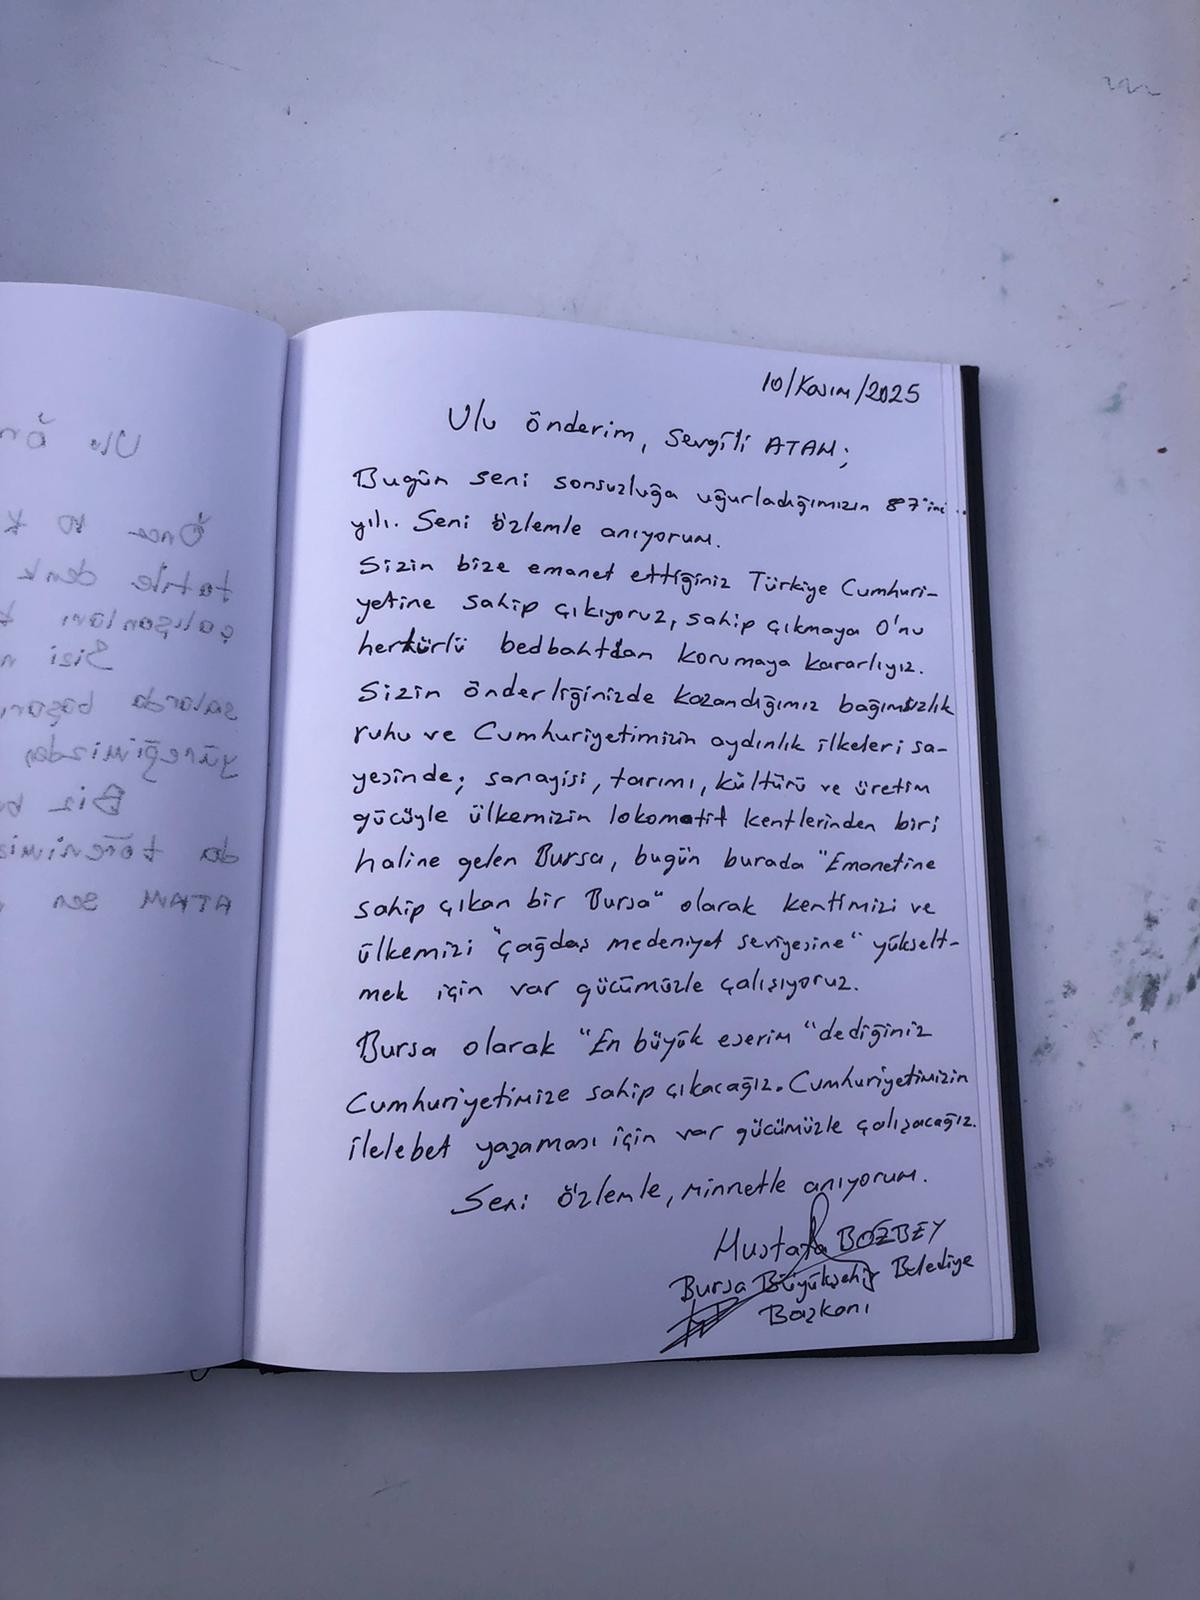 10/Kasım/2025
Ulu önderim, Sevgili ATAM;
Bugün seni sonsuzluğa uğurladığımızın 87'inci
yılı. Seni özlemle anıyorum.
Sizin bize emanet ettiğiniz Türkiye Cumhuri-
yetine sahip çıkıyoruz, sahip çıkmaya O'nu
hertürlü bedbahttan korumaya kararlıyız.
Sizin önderliğinizde kazandığımız bağımsızlık
ruhu ve Cumhuriyetimizin aydınlık ilkeleri sa-
yesinde; sanayisi, tarımı, kültürü ve üretim
gücüyle ülkemizin lokomotif kentlerinden biri
haline gelen Bursa, bugün burada "Emanetine
sahip çıkan bir Bursa" olarak kentimizi ve
ülkemizi "çağdaş medeniyet seviyesine" yükselt-
mek için var gücümüzle çalışıyoruz.
Bursa olarak "En büyük eserim" dediğiniz
Cumhuriyetimize sahip çıkacağız. Cumhuriyetimizin
ilelebet yaşaması için var gücümüzle çalışacağız.
Seni özlemle, minnetle anıyorum.
Mustafa BOZBEY
Bursa Büyükşehir Belediye
Başkanı